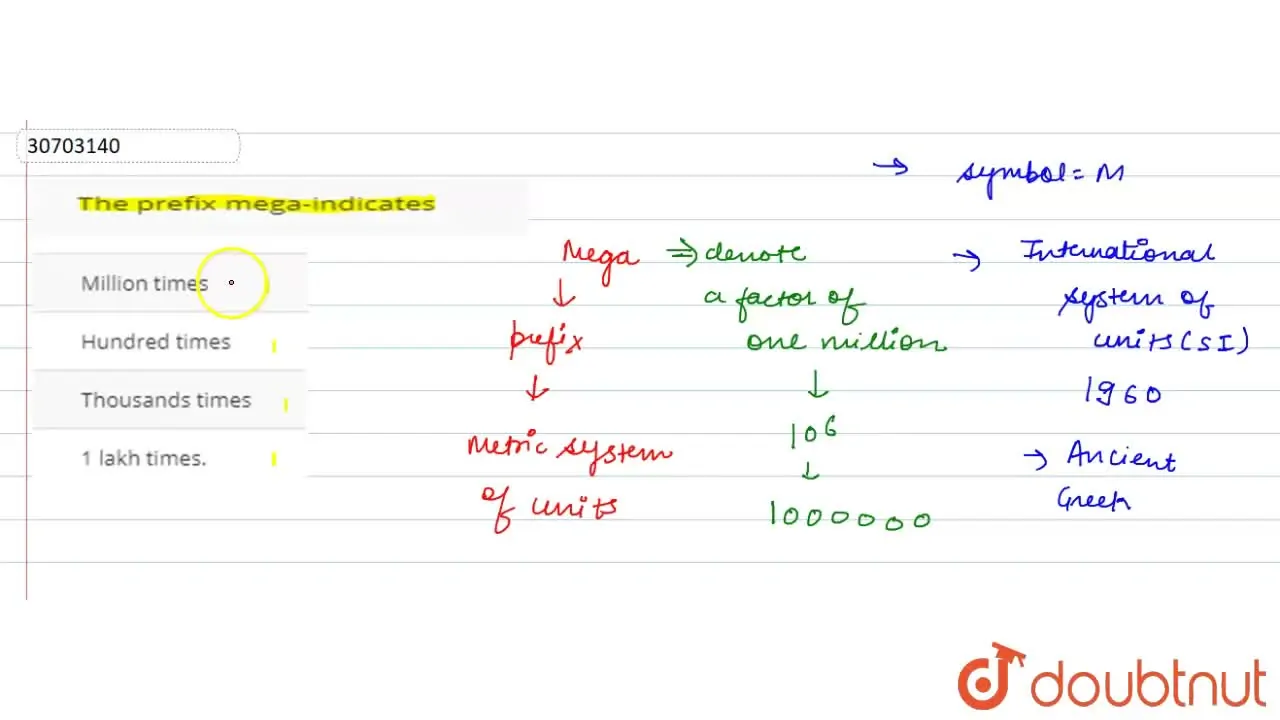 30703140
The prefix mega-indicates
Million times
Hundred times
Thousands times
1 lakh times.
Mega ⇒ denote
↓
prefix
↓
Metric system
of units
a factor of
one million
↓
10⁶
↓
1000000
→ symbol = M
→ International
system of
units (SI)
1960
→ Ancient
Greek
doubtnut